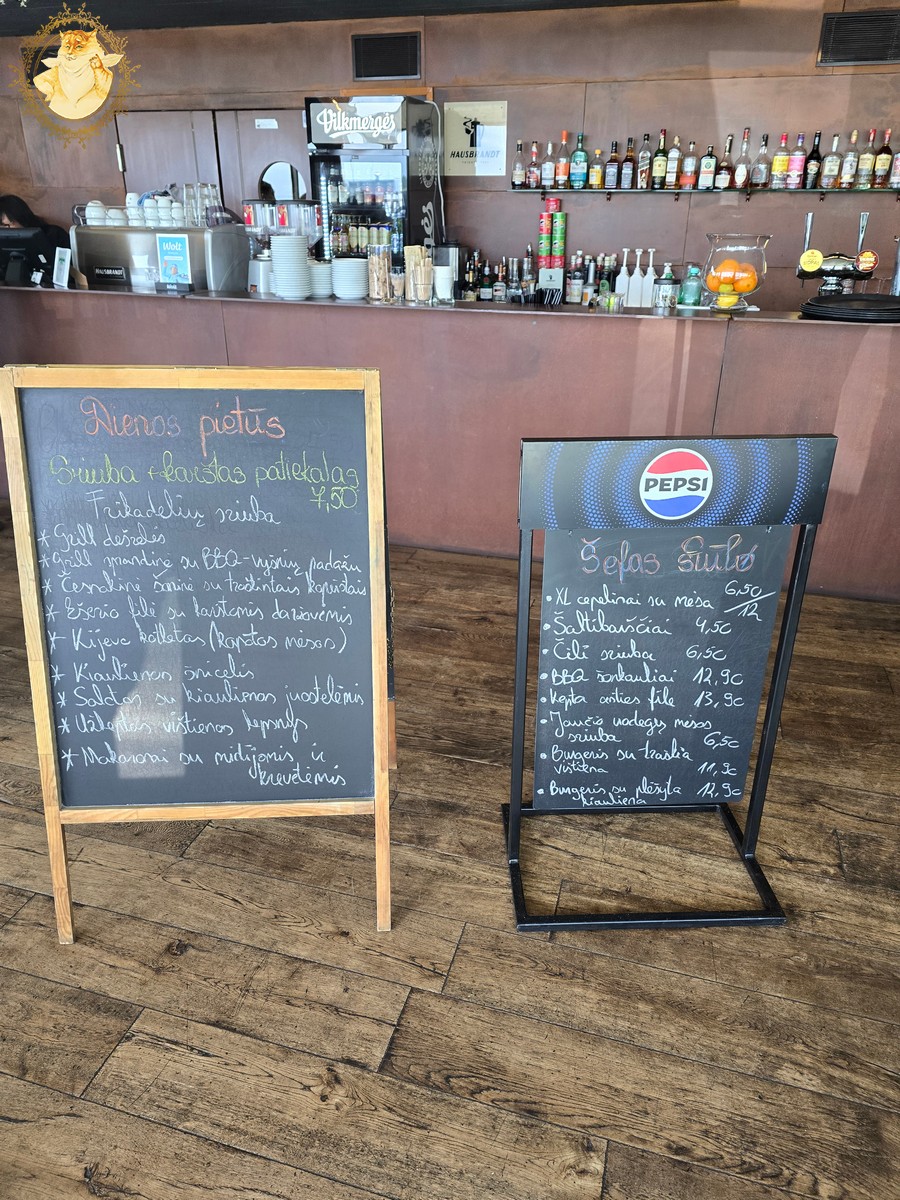 Vilkmergės
HAUSBRANDT
Wolt
HAUSBRANDT
Dienos pietūs
Sriuba + karštas patiekalas
7,50
Frikadelių sriuba
* Grill dešrelės
* Grill sprandinė su BBQ-vyšnių padažu
* Česnakinė šoninė su troškintais kopūstais
* Ešerio filė su karštomis daržovėmis
* Kijevo kotletas (kapotos mėsos)
* Kiaulienos šnicelis
* Salotos su kiaulienos juostelėmis
* Užkeptas vištienos kepsnys
* Makaronai su midijomis ir
krevetėmis
PEPSI
Šefas siūlo
• XL cepelinai su mėsa 6,50/12
• Šaltibarščiai 4,50
• Čili sriuba 6,50
• BBQ šonkauliai 12,90
• Kepta otės filė 13,90
• Jaučio uodegų mėsos
sriuba 6,50
• Burgeris su traškia
vištiena 11,90
• Burgeris su plėšyta 12,90
kiauliena